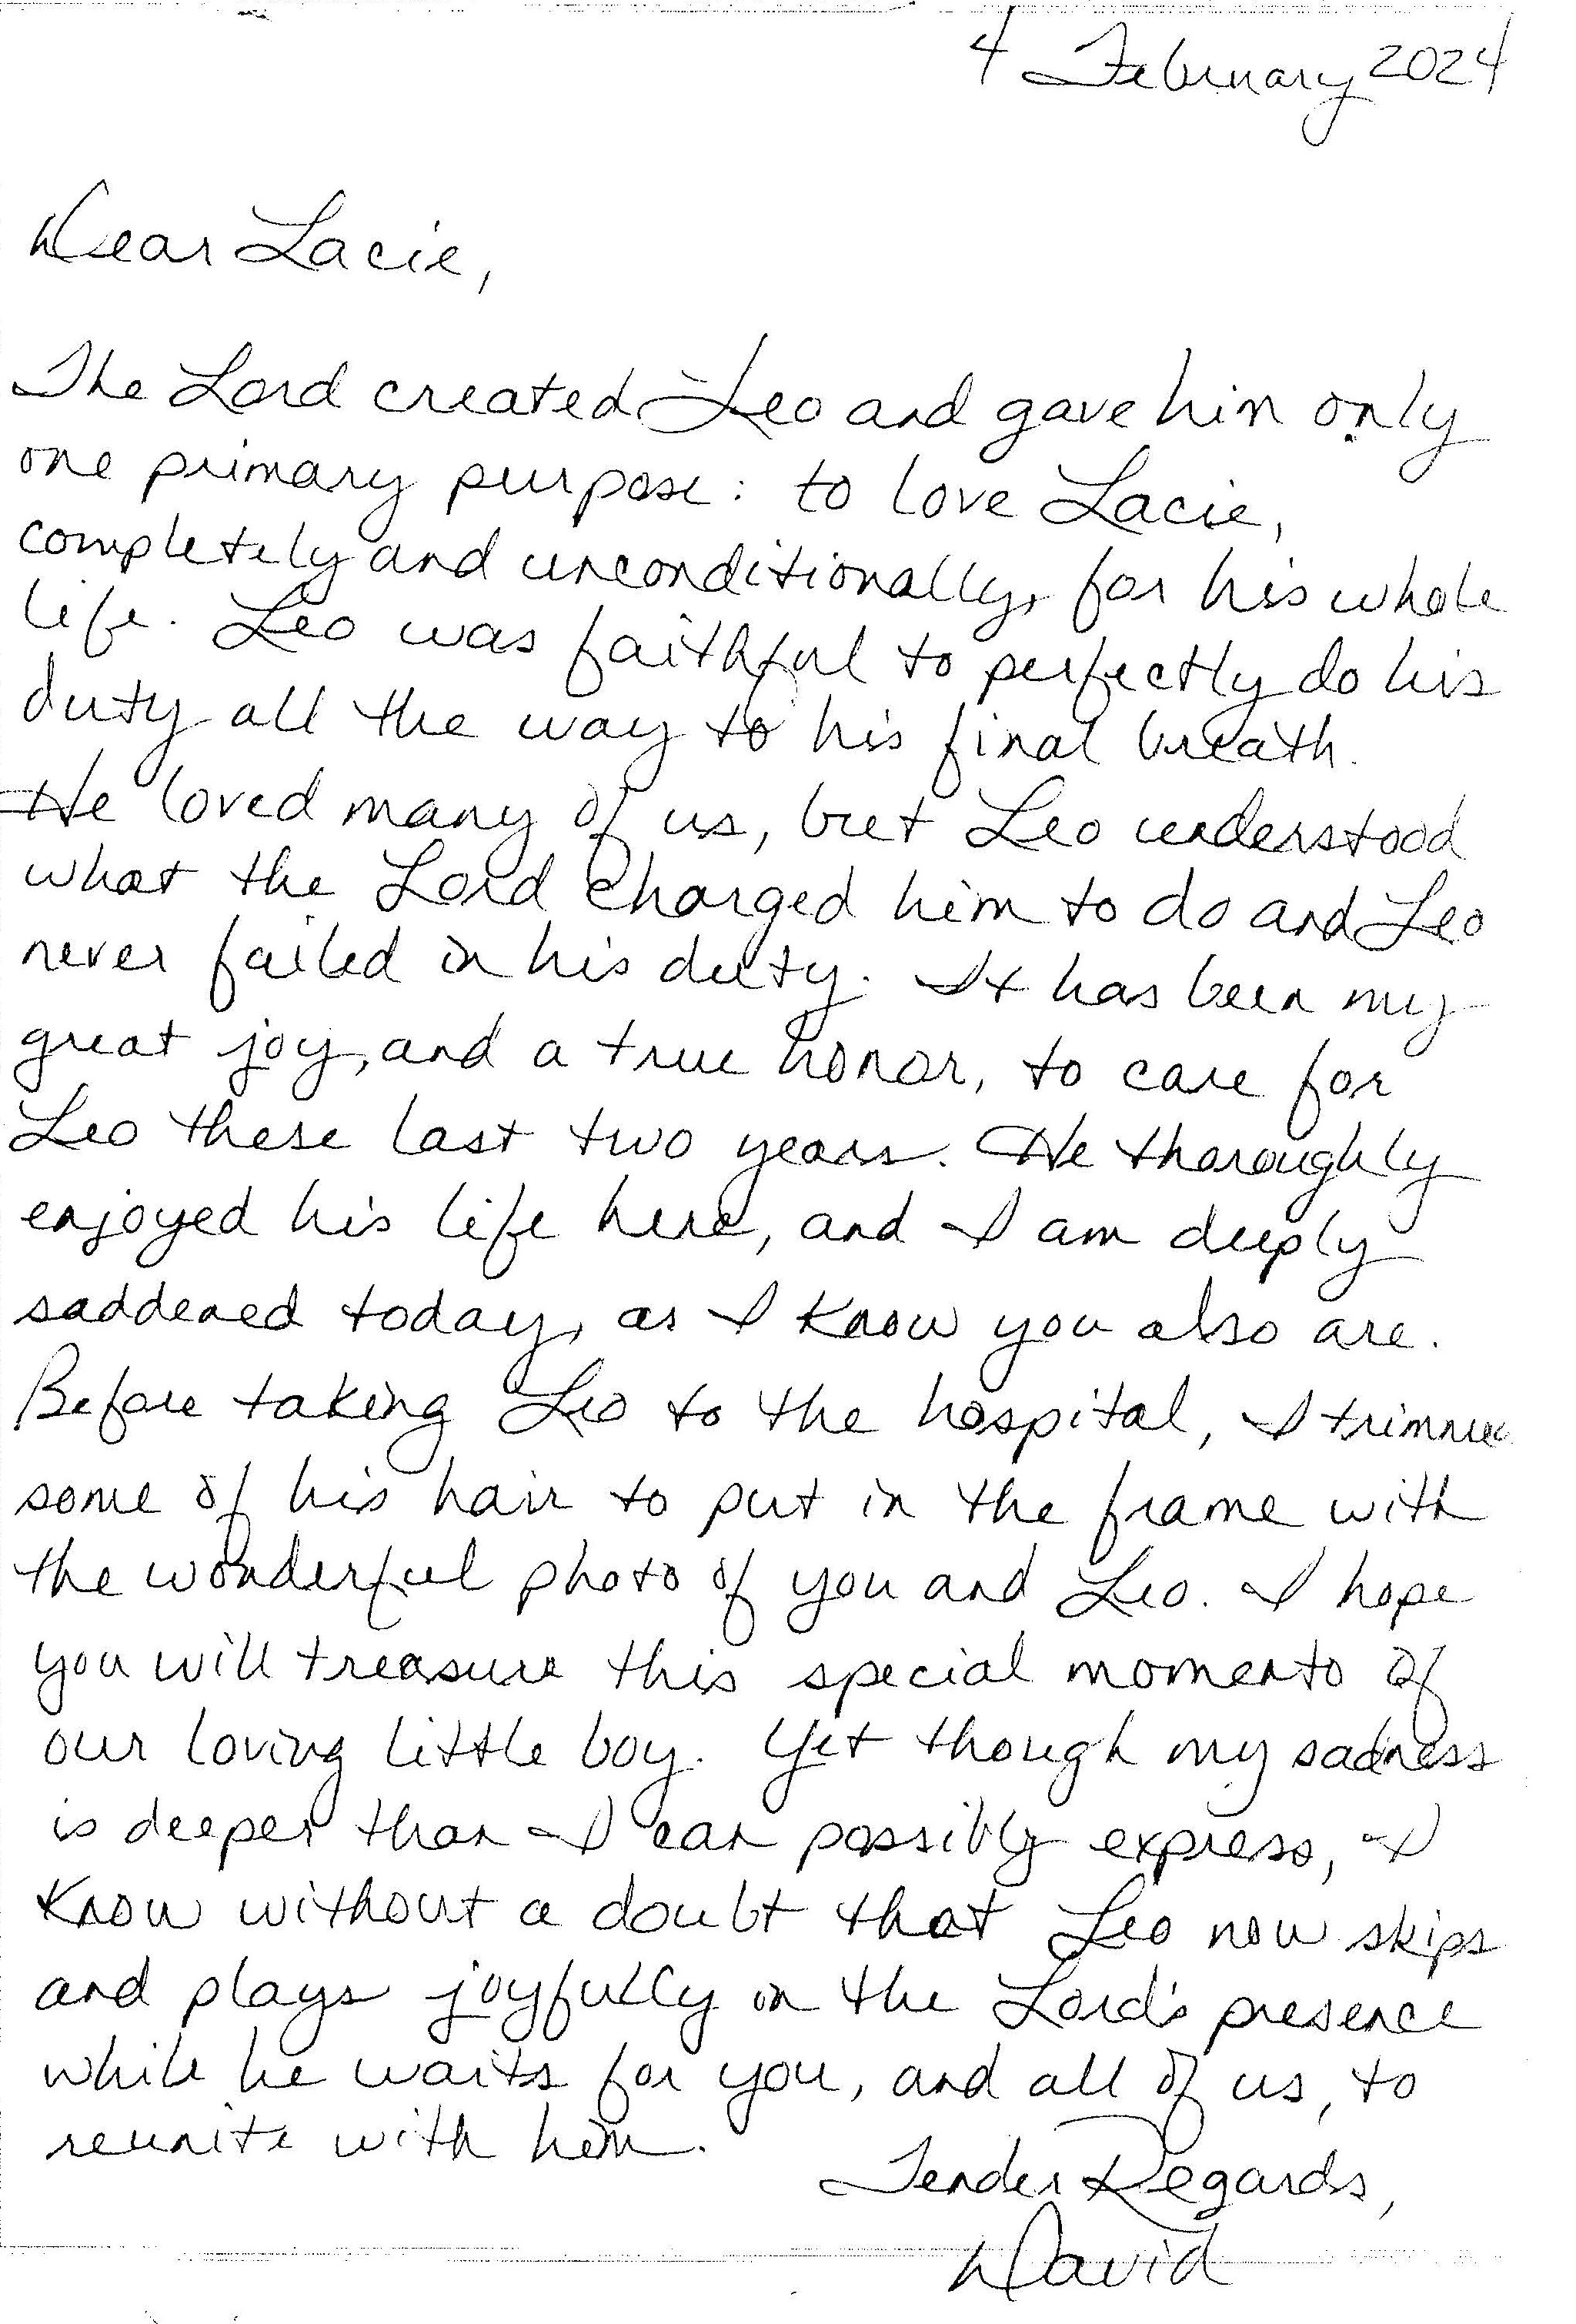 4 February 2024
Dear Lacie,
The Lord created Leo and gave him only
one primary purpose: to love Lacie,
completely and unconditionally, for his whole
life. Leo was faithful to perfectly do his
duty all the way to his final breath.
He loved many of us, but Leo understood
what the Lord charged him to do and Leo
never failed in his duty. It has been my
great joy, and a true honor, to care for
Leo these last two years. He thoroughly
enjoyed his life here, and I am deeply
saddened today, as I know you also are.
Before taking Leo to the hospital, I trimmed
some of his hair to put in the frame with
the wonderful photo of you and Leo. I hope
you will treasure this special momento of
our loving little boy. Yet though my sadness
is deeper than I can possibly express, I
know without a doubt that Leo now skips
and plays joyfully in the Lord's presence
while he waits for you, and all of us, to
reunite with him.
Tender Regards,
David